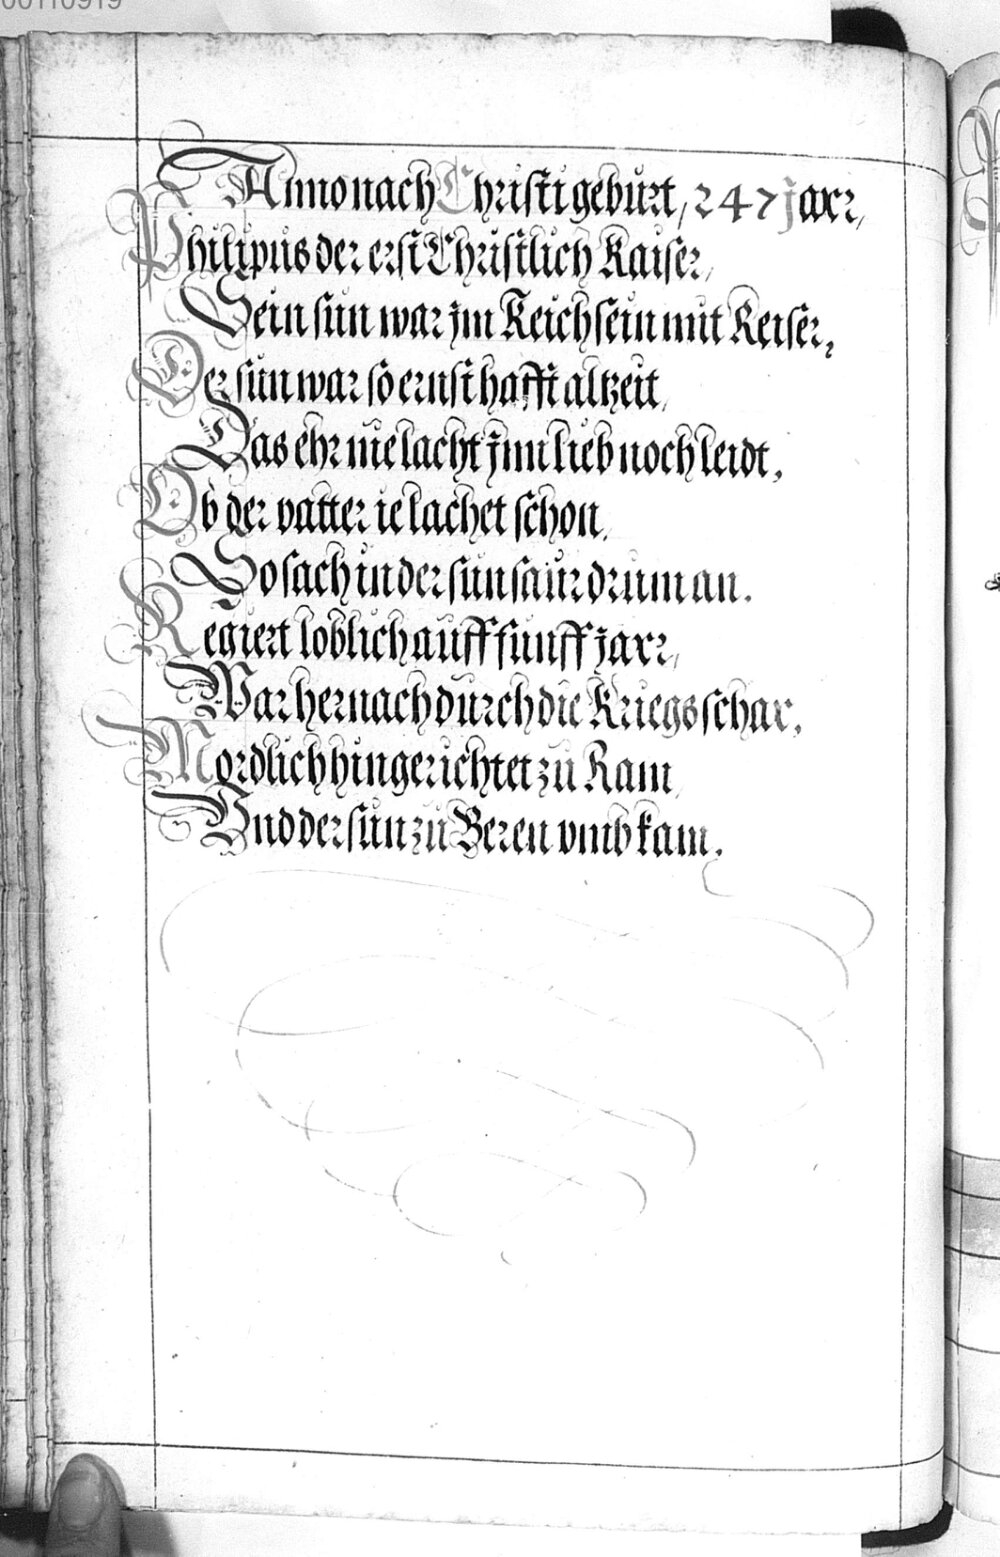 00110919
Anno nach Christi geburt, 247 Jarr,
Philipus der erst Christlich Kaiser,
Sein sun war Jm Reich sein mit Keiser,
Der sun war so ernsthafft altzeit,
Das ehr nie lacht Jnn lieb noch leidt,
Ob der vatter ie lachet schon,
So sach in der sun saur drum an.
Regiert loblich auff funff Jarr,
War hernach durch die Kriegs schar,
Mordlich hingerichtet zu Ram,
Vnd der sun zu Beren vmb kam.